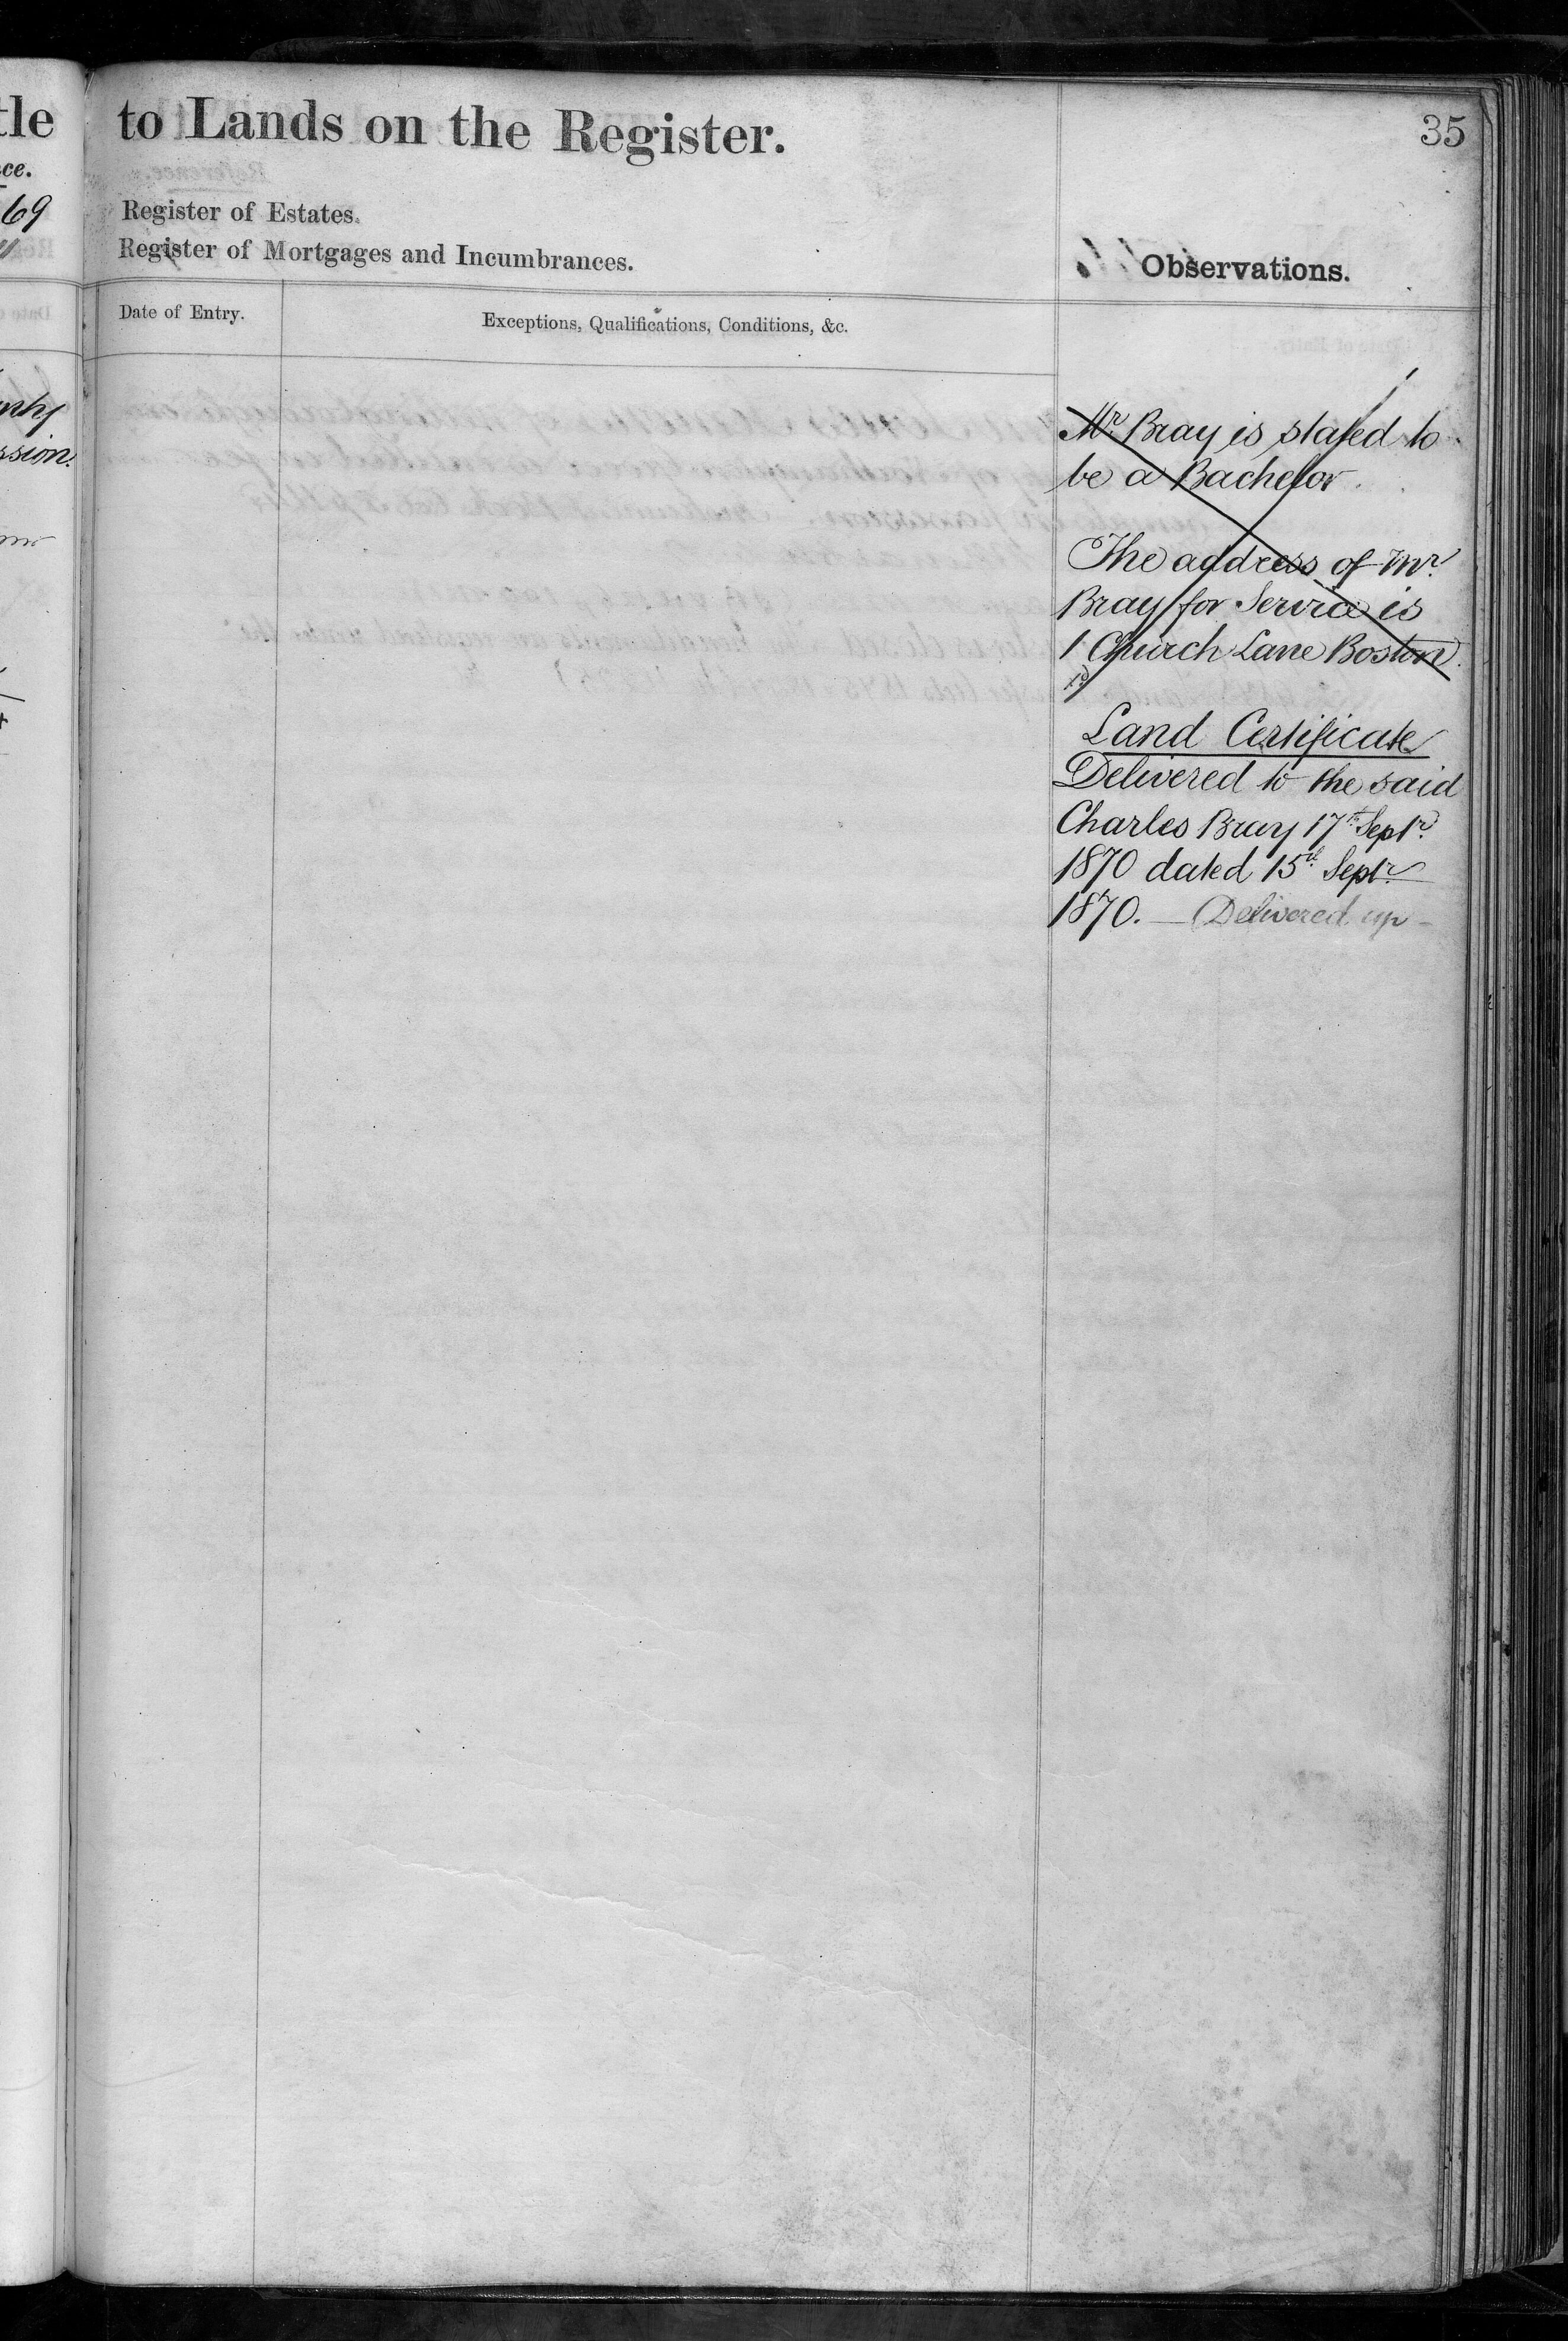 tle
ce.
69
ssion.
to Lands on the Register.
35
Register of Estates.
Register of Mortgages and Incumbrances.
Observations.
Date of Entry.
Exceptions, Qualifications, Conditions, &c.
Mr. Bray is stated to
be a Bachelor.
The address of Mr.
Bray for Service is
1 Church Lane Boston.
Land Certificate
Delivered to the said
Charles Bray 17th Septr.
1870 dated 15th Septr.
1870. — Delivered up –